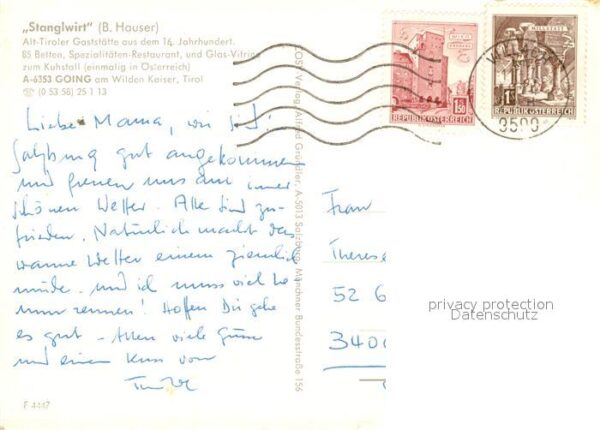 „Stanglwirt" (B. Hauser)
Alt-Tiroler Gaststätte aus dem 16. Jahrhundert.
85 Betten, Spezialitäten-Restaurant, und Glas-Vitrine
zum Kuhstall (einmalig in Österreich)
A-6353 GOING am Wilden Kaiser, Tirol
☏ (0 53 58) 25 1 13
Liebe Mama, wir sind
Salzburg gut angekommen
und freuen uns am
schönen Wetter. Alle sind zu-
frieden. Natürlich macht das
warme Wetter einem ziemlich
müde und ich muss viel
! Hoffen Dir gehe
es gut - Allen viele Grüsse
und einen Kuss von
F 4447
COSY-Verlag Alfred Gründler, A-5013 Salzburg, Münchner Bundesstraße 156
1.50
REPUBLIK ÖSTERREICH
MILLSTATT
REPUBLIK ÖSTERREICH
VILLACH
9500
Frau
Therese
52 6
340
privacy protection
Datenschutz